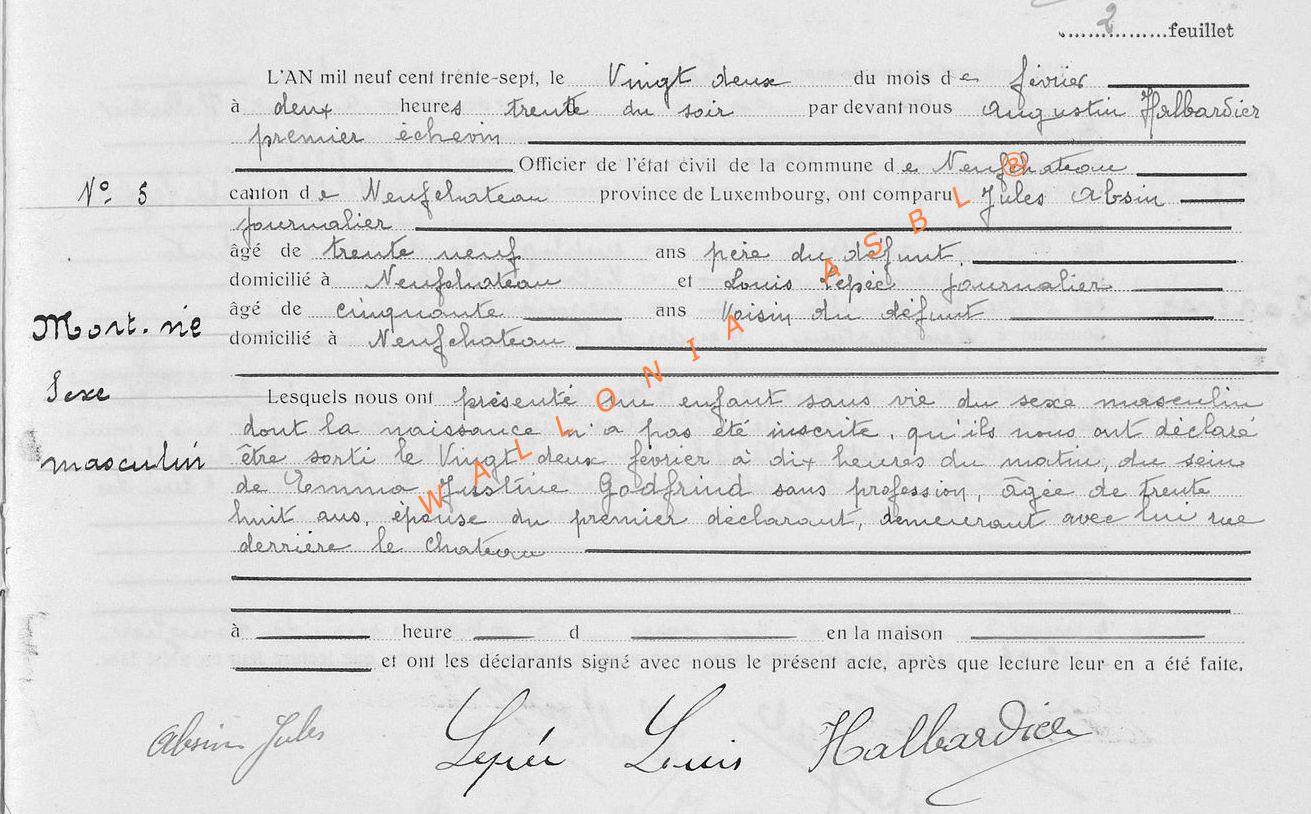 2 feuillet
L'AN mil neuf cent trente-sept, le Vingt deux du mois de février
à deux heures trente du soir par devant nous Augustin Halbardier
premier échevin
Officier de l'état civil de la commune de Neufchateau
N° 5 canton de Neufchateau province de Luxembourg, ont comparu Jules Absin
journalier
âgé de trente neuf ans père du défunt
domicilié à Neufchateau et Louis Lepée journalier
âgé de cinquante ans Voisin du défunt
Mort-né
domicilié à Neufchateau
Sexe
masculin
Lesquels nous ont présenté un enfant sans vie du sexe masculin
dont la naissance n'a pas été inscrite, qu'ils nous ont déclaré
être sorti le Vingt deux février à dix heures du matin, du sein
de Emma Justine Godfrind sans profession, âgée de trente
huit ans, épouse du premier déclarant, demeurant avec lui rue
derrière le chateau
à heure d en la maison
et ont les déclarants signé avec nous le présent acte, après que lecture leur en a été faite.
Absin Jules Lepée Louis Halbardier
WALLONIA ASBL ®